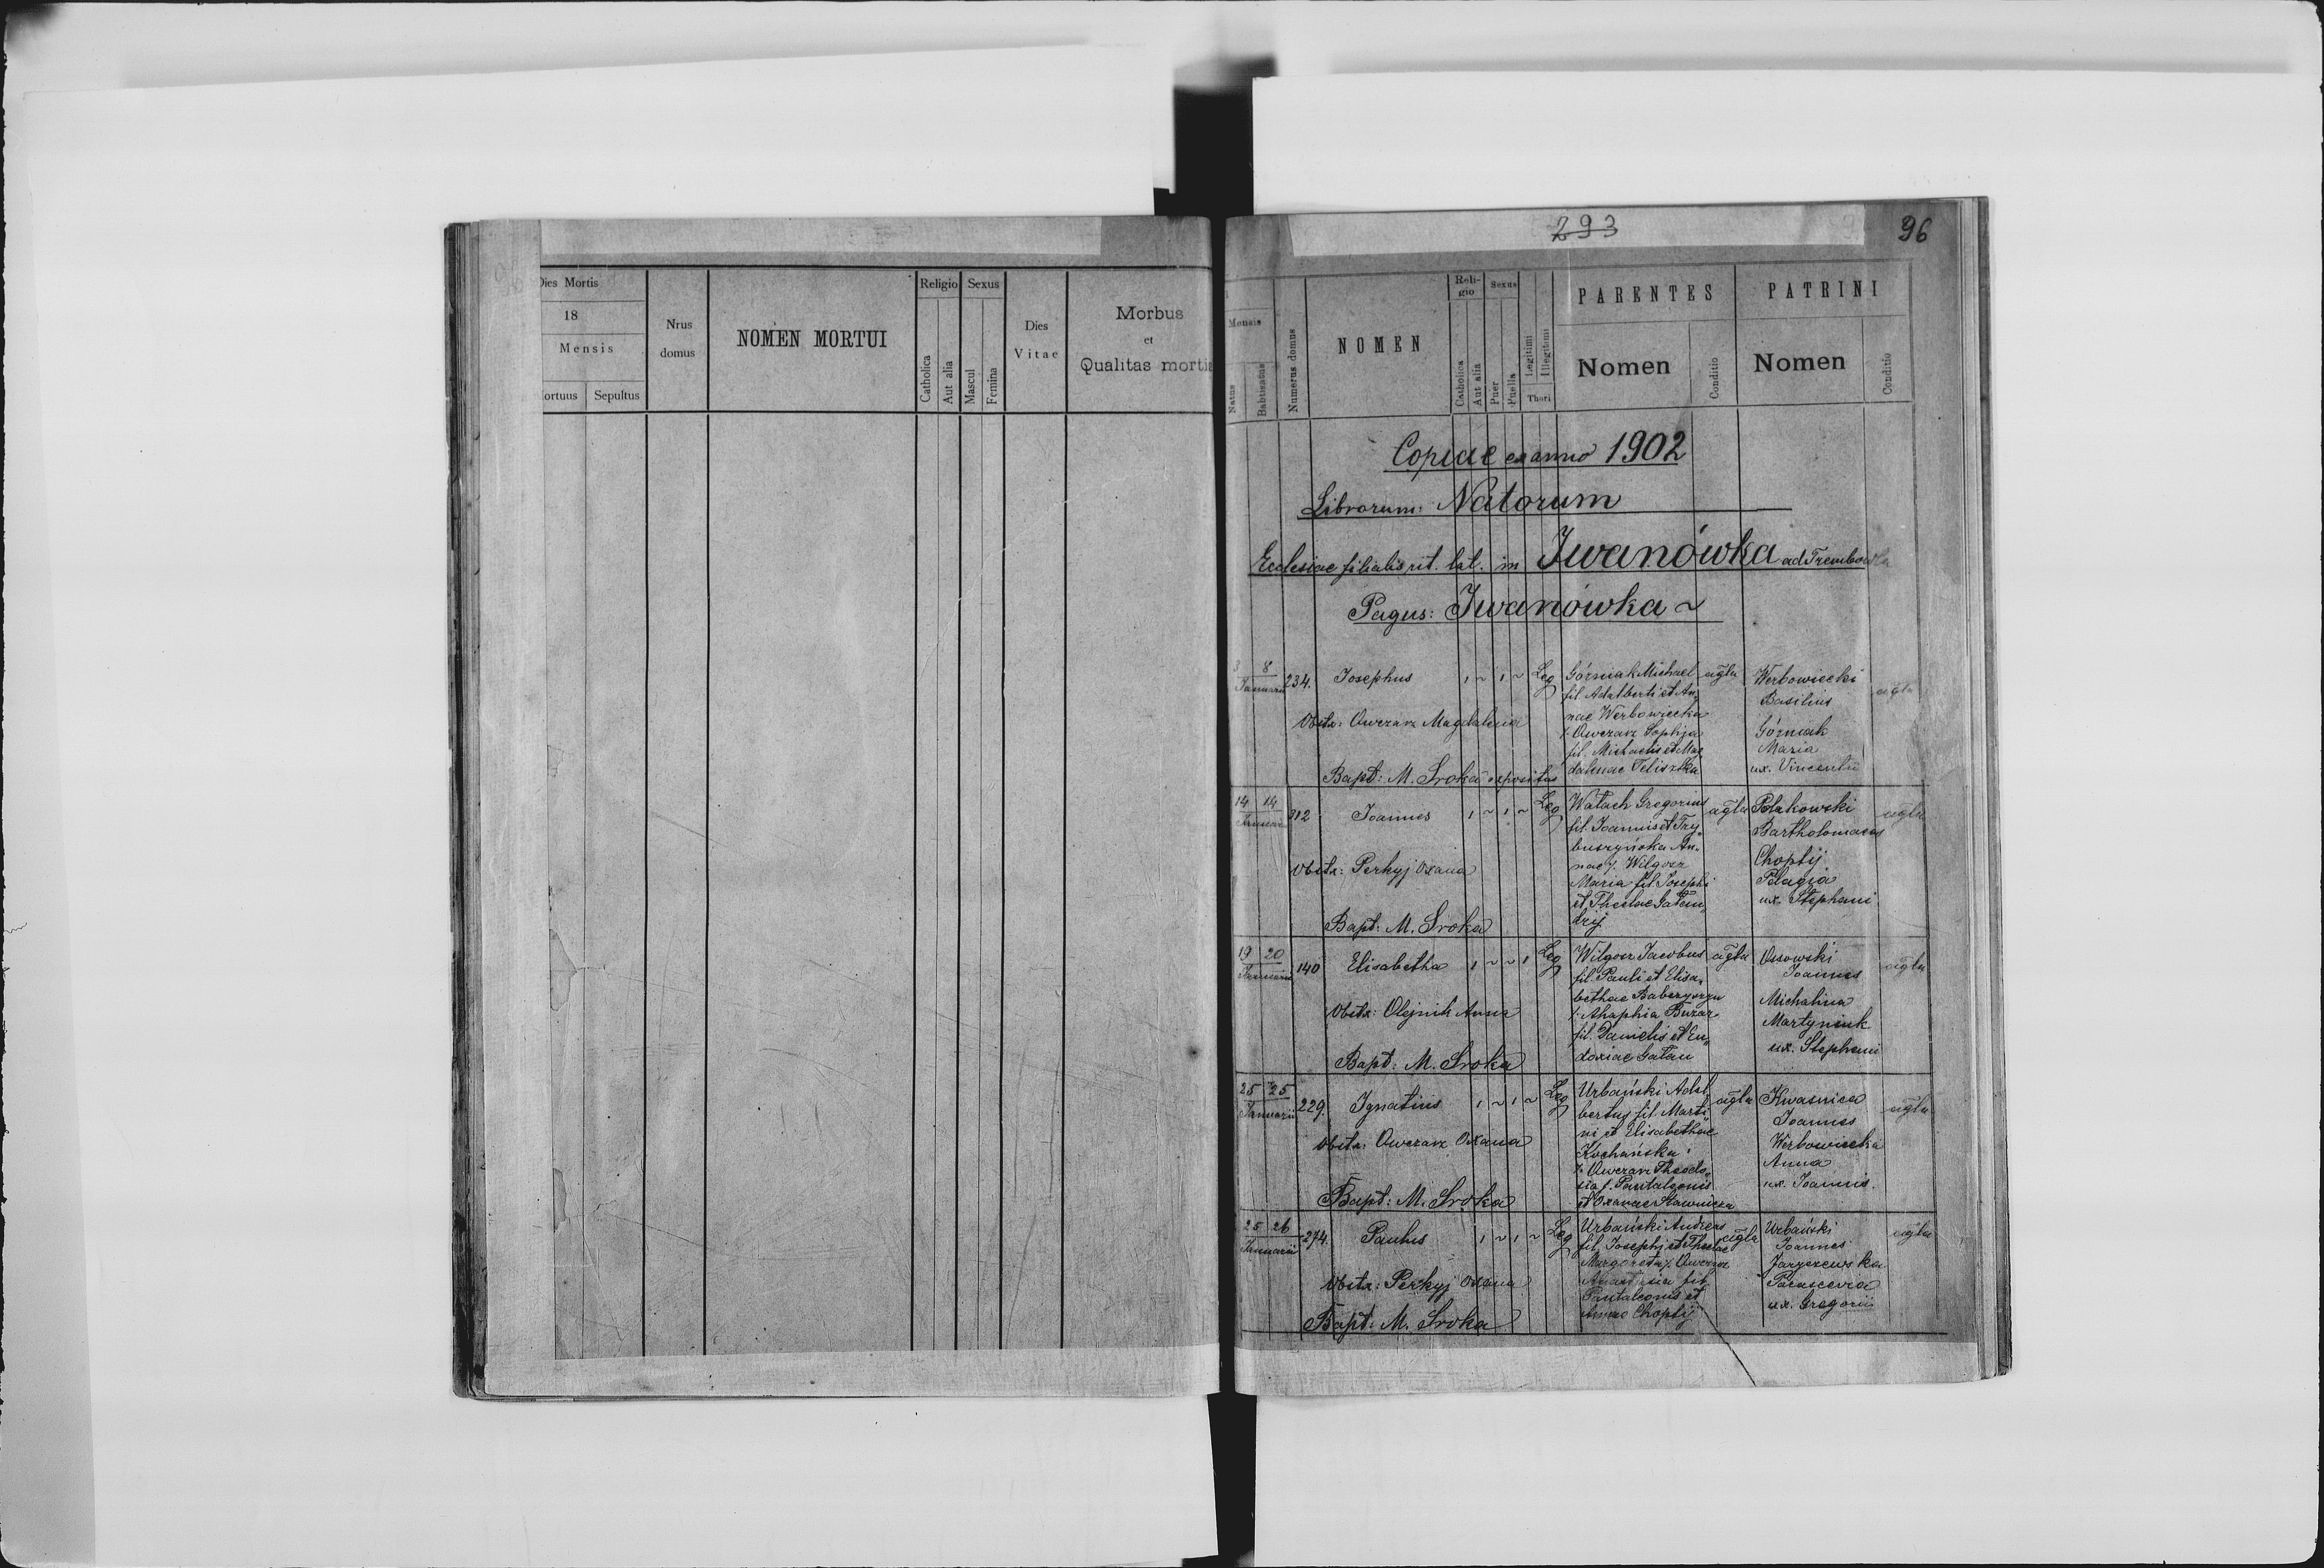 Dies Mortis
18
Mensis
Sepultus
Nrus
domus
NOMEN MORTUI
Religio
Catholica
Aut alia
Sexus
Mascul
Femina
Dies
Vitae
Morbus
et
Qualitas mortis
293
96
Mensis
Natus
Babtisatus
Numerus domus
NOMEN
Reli-
gio
Catholica
Aut alia
Sexus
Puer
Puella
Legitimi
Illegitimi
Thori
PARENTES
Nomen
Conditio
PATRINI
Nomen
Conditio
Copiae ex anno 1902
Librorum: Natorum
Ecclesiae filialis rit. lat. in Iwanówka ad Trembowla
Pagus: Iwanówka ~
3 8
Januarii
234.
Josephus
1 ~ 1 ~ Leg
Obstr: Owczarz Magdalena
Bapt: M. Sroka expositus
Górniak Michael
fil. Adalberti et An„
nae Werbowiecka
/. Owczarz Sophija
fil. Michaelis et Mag
dalenae Teliszka
agla
Werbowiecki
Basilius
Górniak
Maria
ux. Vincentii
agla
14 14
Januarii
312
Joannes
1 ~ 1 ~ Leg
Obstr: Perkyj Oxana
Bapt: M. Sroka
Wałach Gregorius
fil. Joannis et Try„
buszyńska An„
nae /. Wilgosz
Maria fil. Josephi
et Theclae
agla
Polakowski
Bartholomaeus
Choptij
Pelagia
ux. Stephani
agla
19 20
Januarii
140
Elisabetha
1 ~ ~ 1 Leg
Obstr: Olejnik Anna
Bapt: M. Sroka
Wilgosz Jacobus
fil. Pauli et Elisa„
bethae
/. Ahaphia
fil. Danielis et Eu„
doxiae Gałan
agla
Ossowski
Joannes
Michalina
Martyniuk
ux. Stephani
agla
25 25
Januarii
229.
Ignatius
1 ~ 1 ~ Leg
Obstr. Owczarz Oxana
Bapt: M. Sroka
Urbański Adal
bertus fil. Marti
ni et Elisabethae
Kochańska
/. Owczarz Theodo„
sia f. Pantaleonis
et Oxanae Sławnicka
agla
Kwasnica
Joannes
Werbowiecka
Anna
ux. Joannis.
agla
25 26
Januarii
274.
Paulus
1 ~ 1 ~ Leg
Obstr: Perkyj Oxana
Bapt: M. Sroka
Urbański Andreas
fil. Josephi et Theclae
Owczarz
Anastasia fil.
Pantaleonis et
Annae Choptij
agla
Urbański
Joannes
Jaryczewska
Parascevia
ux. Gregorii
agla